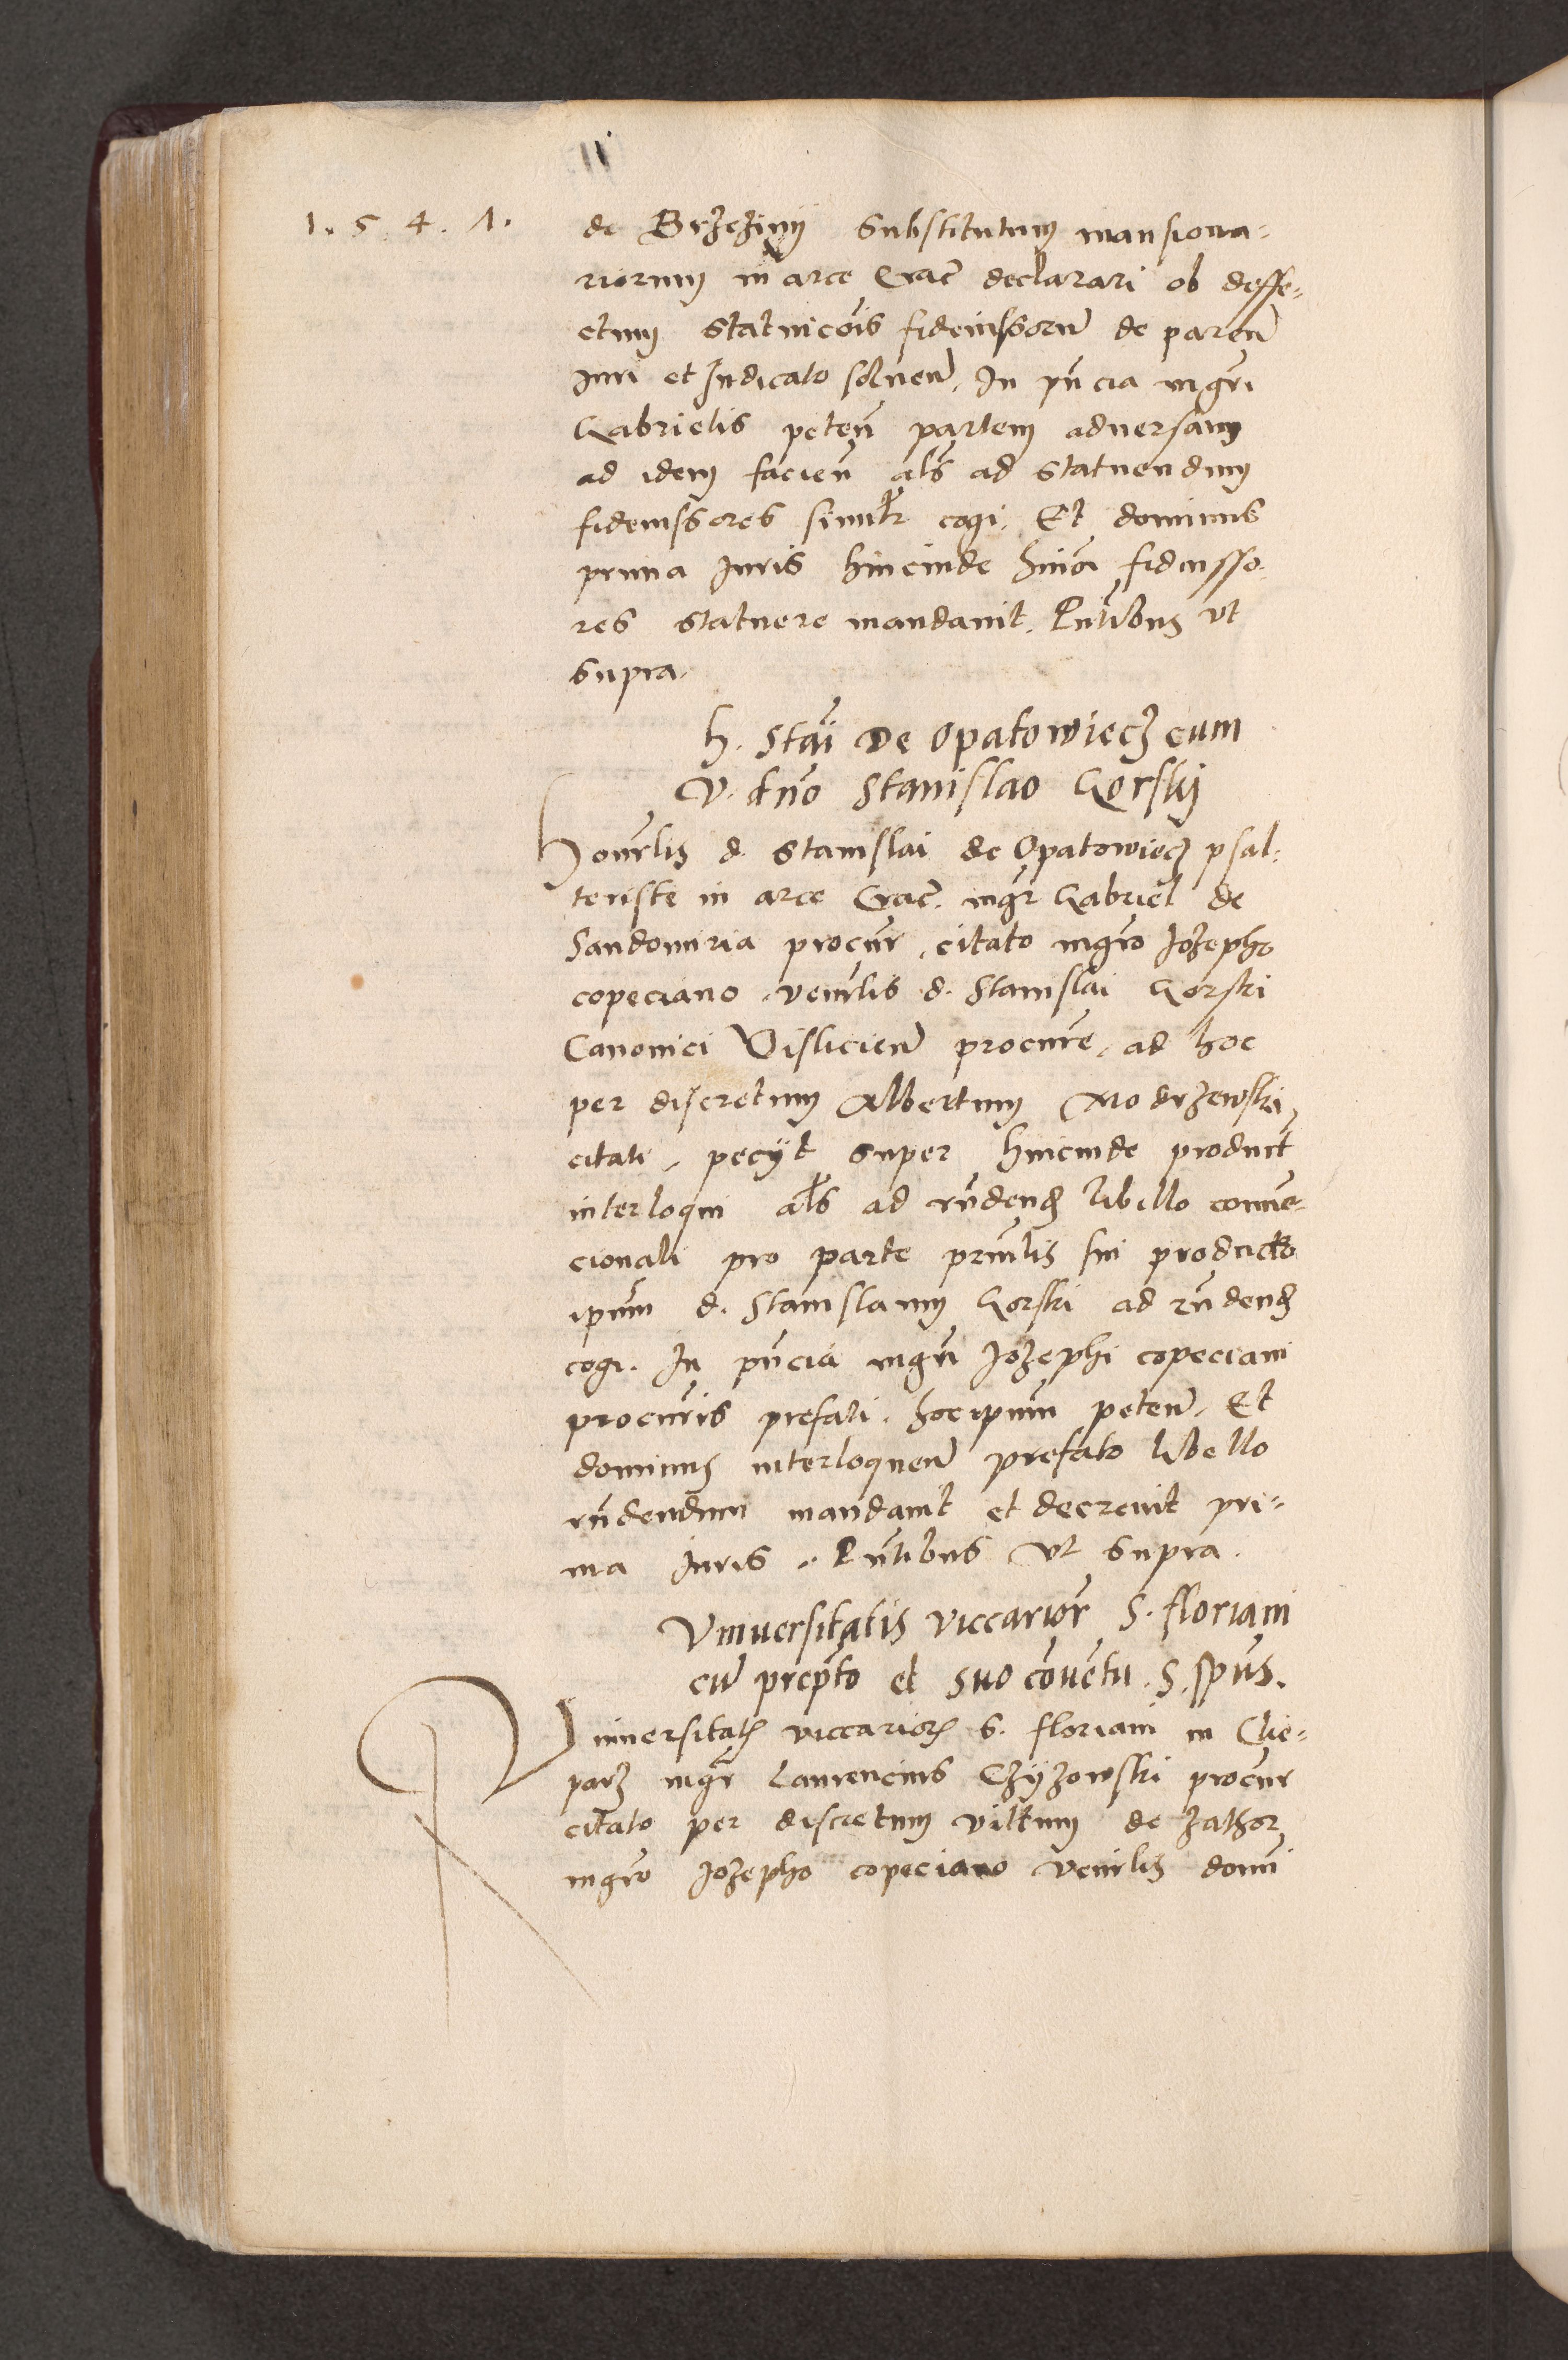 1.5.4.1.
de Brzeziny substitutum mansiona-
riorum in arce Crac declarari ob deffe-
ctum statuicois fideiussorum de paren
Juri et Judicato soluen, In pncia mgri
Gabrielis peten partem aduersam
ad idem facien als ad statuendum
fideiussores similr cogi. Et dominus
prima Juris hincinde hmoi fideiusso-
res statuere mandauit. Pntibus vt
supra.
h. Stai De Opatowiecz cum
V. dno Stanislao Gorskj
Honrlis d. Stanislai de Opatowiecz psal-
teriste in arce Crac. mgr Gabriel de
Sandomiria procur. citato mgro Jozepho
copeciano venrlis d. Stanislai Gorski
Canonici Vislicien procure, ad hoc
per discretum Albertum Modrzewski
citati, pecijt super hincinde product
interloqui als ad rndend libello conue-
cionali pro parte prinlis sui producto
ipum d. Stanislaum Gorski ad rndend
cogi. In pncia mgri Jozephi copeciani
procuris prefati. hocipum peten. Et
dominus interloquen prefato libello
rndendum mandauit et decreuit pri-
ma Juris. Pntibus vt supra.
Vniuersitatis viccarior S. floriani
cu prepto et suo couentu. S. spus.
Vniuersitatis viccarior S. floriani in Cle-
parz mgr Laurencius Czyzowski procur
citato per discretum vittum de Zathor
mgro Jozepho copeciano venrlis domi